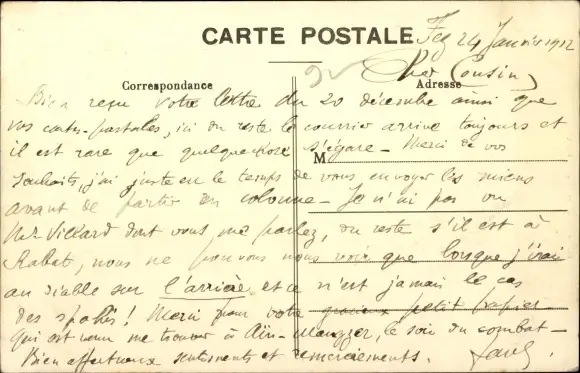 CARTE POSTALE
Fez 24 Janvier 1912
Correspondance
Adresse
Cher Cousin,
Bien reçu votre lettre du 20 décembre ainsi que
vos cartes-postales, ici du reste le courrier arrive toujours et
il est rare que quelque chose s'égare - Merci de vos
M
souhaits, j'ai juste eu le temps de vous envoyer les miens
avant de partir en colonne - Je n'ai pas vu
Mr Villard dont vous me parlez, du reste s'il est à
Rabat, nous ne pouvons nous voir que lorsque j'irai
au diable sur l'arrière et ce n'est jamais le cas
des spahis! Merci pour votre gracieux petit papier
qui est venu me trouver à Aïn-Maarouf, le soir du combat -
Bien affectueux sentiments et remerciements.